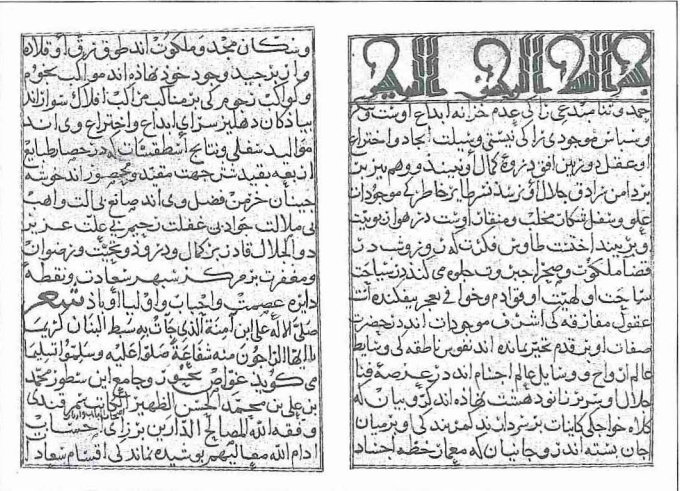 بسم الله الرحمن الرحيم
حمد و ثنا مبدعی را کی عدم خزانه ابداع اوست و شکر
و سپاس موجودی را کی نیستی وسیلت ایجاد و اختراع
او عقل دوربین افق ذروة کمال او نبیند و وهم تیزبین
بر دامن سرادق جلال او نرسد نه طایر خاطر کی موجودات
علوی و سفلی شکار مخلب و منقار اوست در هوا
او پر بینداخت نه طاوس فکرت که در
فضا ملکوت و صحرا جبروت جلوه می کند در ساحت
او قوادم و خوافی عجز بیفکنده است
عقول مفارقه کی اشرف موجودات اند در حضرت
صفات او بر قدم تحیر بمانده اند نفوس ناطقه کی وسایط
عالم ارواح و وسایل عالم اجسام اند در عرصه
جلال او سر بر زانو دهشت نهاده اند کروبیان که
کلاه خواجگی کاینات بر سر دارند کمر بندگی او بر میان
جان بسته اند روحانیان که معمار خطه اجساد
و بندگان مجد و ملکوت اند طوق رق او قلاده
وار بر جید وجود خود نهاده اند مواکب نجوم
و کواکب رجوم کی بر مناکب مراکب افلاک سوار اند
پیاذکان دهلیز سرای ابداع و اختراع وی اند
موالید سفلی و نتایج اسطقسات که در حصار طبایع
اربعه بقید شش جهت مقید و محصور اند خوشه
چینان خرمن فضل وی اند صانع بی الت واهب
بی ملالت جواد بی غفلت رحیم بی علت عزیز
ذوالجلال قادر بر کمال و درود و تحیت و رضوان
و مغفرت بر مرکز سپهر سعادت و نقطهٔ
دایره عصمت و احباب و اولیا او باذ شعر
صلی الاله علی ابن آمنة الذی جات به سبط البنان کریما
یا ایها الراجون منه شفاعة صلوا علیه و سلموا تسلیما
می کوید غواص بحور و جامع این سطور محمد
بن علی بن محمد بن الحسن الظهیر الکاتب السمرقندی
وفقه الله لمصالح الدارین بر رای اصحاب
ادام الله معالیهم بوشیده نماند کی اقسام سعادا